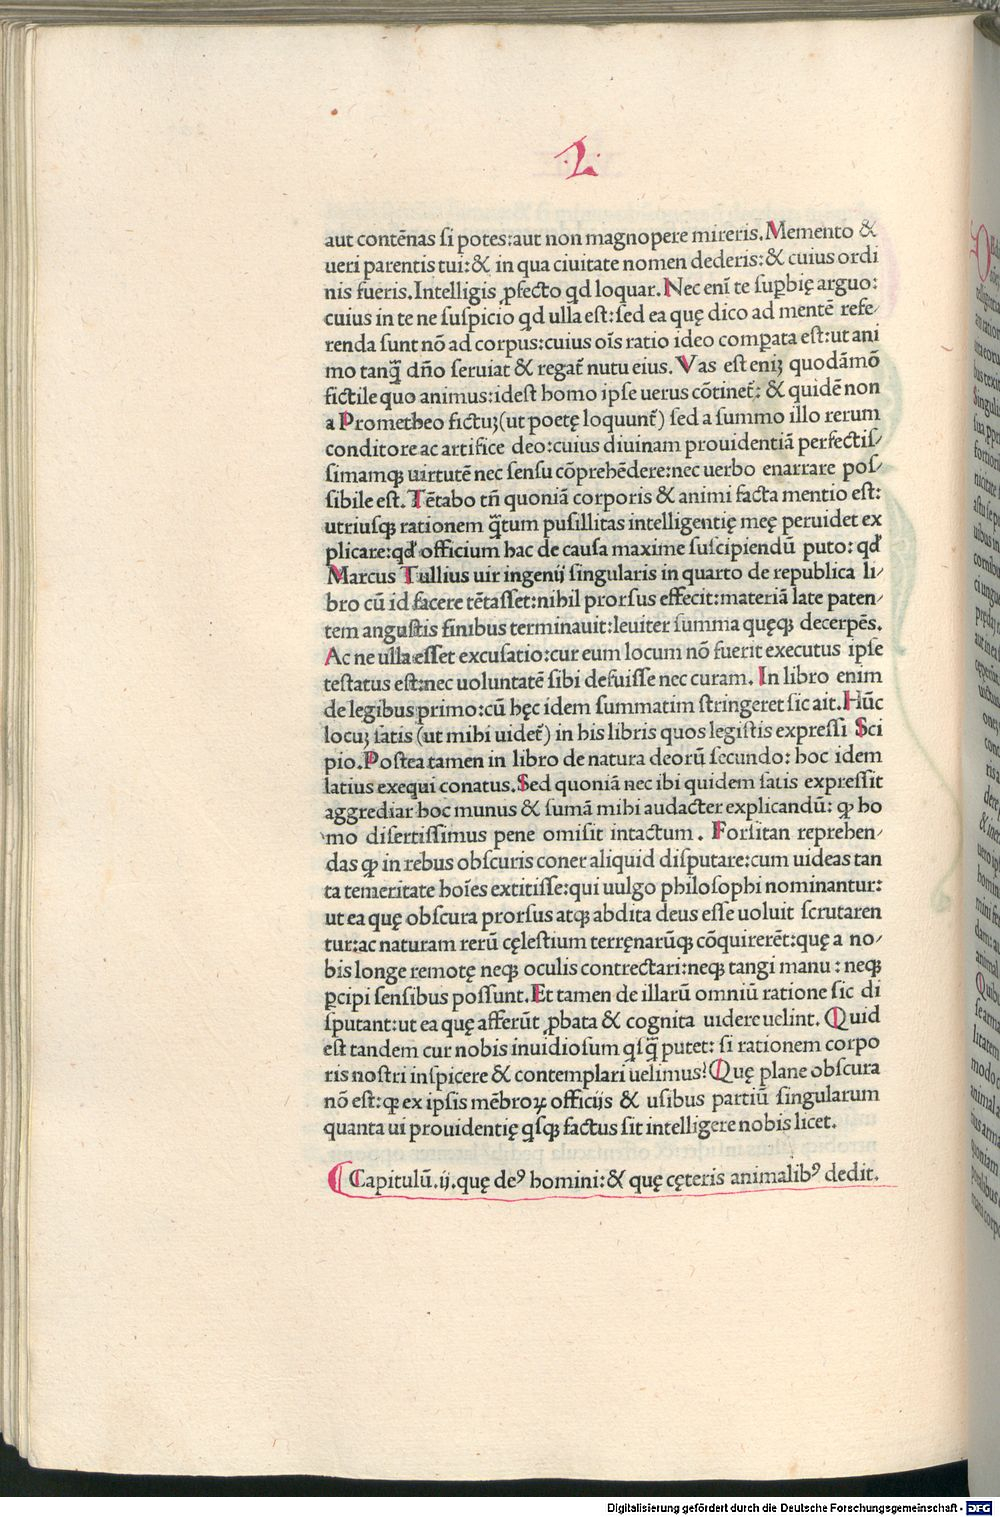 ·L·
aut contēnas ſi potes:aut non magnopere mireris. Memento &
ueri parentis tui:& in qua ciuitate nomen dederis:& cuius ordi
nis fueris. Intelligis ꝓfecto qd loquar. Nec enī te ſuꝑbię arguo:
cuius in te ne ſuſpicio qd ulla eſt:ſed ea quę dico ad mentē refe-
renda ſunt nō ad corpus:cuius oīs ratio ideo comꝑata eſt:ut ani
mo tanq̄ dño ſeruiat & regat̄ nutu eius. Vas eſt eniꝫ quodāmō
fictile quo animus:ideſt homo ipſe uerus cōtinet̄: & quidē non
a Prometheo fictuꝫ (ut poetę loquunt̄) ſed a ſummo illo rerum
conditore ac artifice deo:cuius diuinam prouidentiā perfectiſ-
ſimamqꝫ uirtutē nec ſenſu cōprehēdere:nec uerbo enarrare poſ-
ſibile eſt. Tētabo tñ quoniā corporis & animi facta mentio eſt:
utriuſqꝫ rationem q̄tum puſillitas intelligentię meę peruidet ex
plicare:qd officium hac de cauſa maxime ſuſcipiendū puto: qd
Marcus Tullius uir ingenij ſingularis in quarto de republica li-
bro cū id facere tētaſſet:nihil prorſus effecit:materiā late paten-
tem anguſtis finibus terminauit:leuiter ſumma quęqꝫ decerpēs.
Ac ne ulla eſſet excuſatio:cur eum locum nō fuerit executus ipſe
teſtatus eſt:nec uoluntatē ſibi defuiſſe nec curam. In libro enim
de legibus primo:cū hęc idem ſummatim ſtringeret ſic ait. Hūc
locuꝫ ſatis (ut mihi uidet̄) in his libris quos legiſtis expreſſi Sci
pio. Poſtea tamen in libro de natura deorū ſecundo: hoc idem
latius exequi conatus. Sed quoniā nec ibi quidem ſatis expreſſit
aggrediar hoc munus & ſumā mihi audacter explicandū: ꝙ ho
mo diſertiſſimus pene omiſit intactum. Forſitan reprehen-
das ꝙ in rebus obſcuris coner aliquid diſputare:cum uideas tan
ta temeritate hoīes extitiſſe:qui uulgo philoſophi nominantur:
ut ea quę obſcura prorſus atqꝫ abdita deus eſſe uoluit ſcrutaren
tur:ac naturam rerū cęleſtium terręnarūqꝫ cōquirerēt:quę a no-
bis longe remotę neqꝫ oculis contrectari:neqꝫ tangi manu: neqꝫ
ꝑcipi ſenſibus poſſunt. Et tamen de illarū omniū ratione ſic di
ſputant:ut ea quę afferūt ꝓbata & cognita uidere uelint. Quid
eſt tandem cur nobis inuidioſum qſq̄ putet: ſi rationem corpo
ris noſtri inſpicere & contemplari uelimus? Quę plane obſcura
nō eſt:ꝙ ex ipſis mēbroꝝ officijs & uſibus partiū ſingularum
quanta ui prouidentię qſqꝫ factus ſit intelligere nobis licet.
Capitulū.ij.quę deꝰ homini:& quę cęteris animalibꝰ dedit.
Digitalisierung gefördert durch die Deutsche Forschungsgemeinschaft - DFG